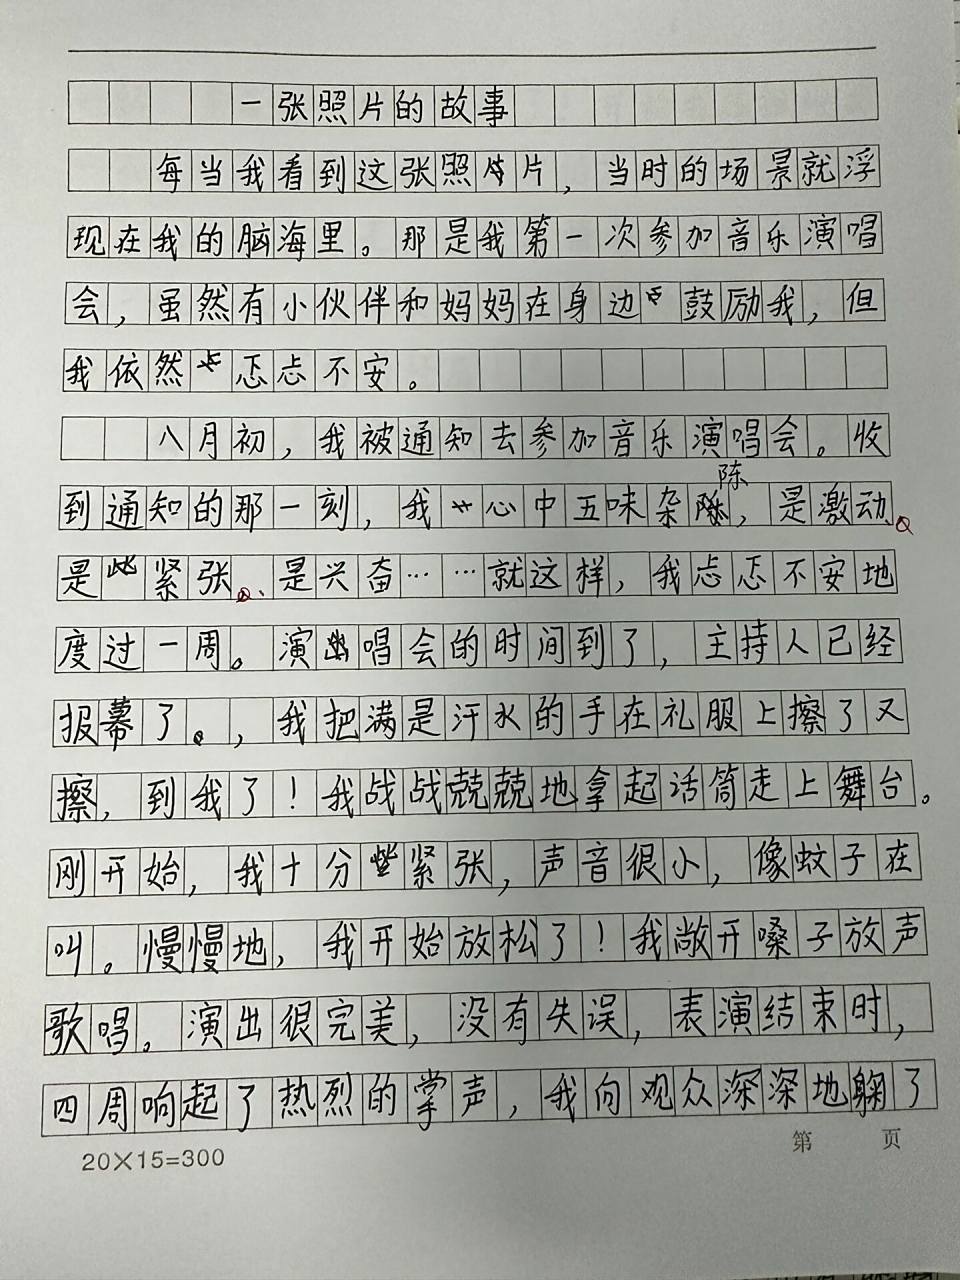 一张照片的故事
每当我看到这张照片，当时的场景就浮
现在我的脑海里。那是我第一次参加音乐演唱
会，虽然有小伙伴和妈妈在身边鼓励我，但
我依然忐忑不安。
八月初，我被通知去参加音乐演唱会。收
陈
到通知的那一刻，我心中五味杂，是激动、
是紧张、是兴奋……就这样，我忐忑不安地
度过一周。演唱会的时间到了，主持人已经
报幕了，我把满是汗水的手在礼服上擦了又
擦，到我了！我战战兢兢地拿起话筒走上舞台。
刚开始，我十分紧张，声音很小，像蚊子在
叫。慢慢地，我开始放松了！我敞开嗓子放声
歌唱。演出很完美，没有失误，表演结束时，
四周响起了热烈的掌声，我向观众深深地鞠了
20×15=300
第 页